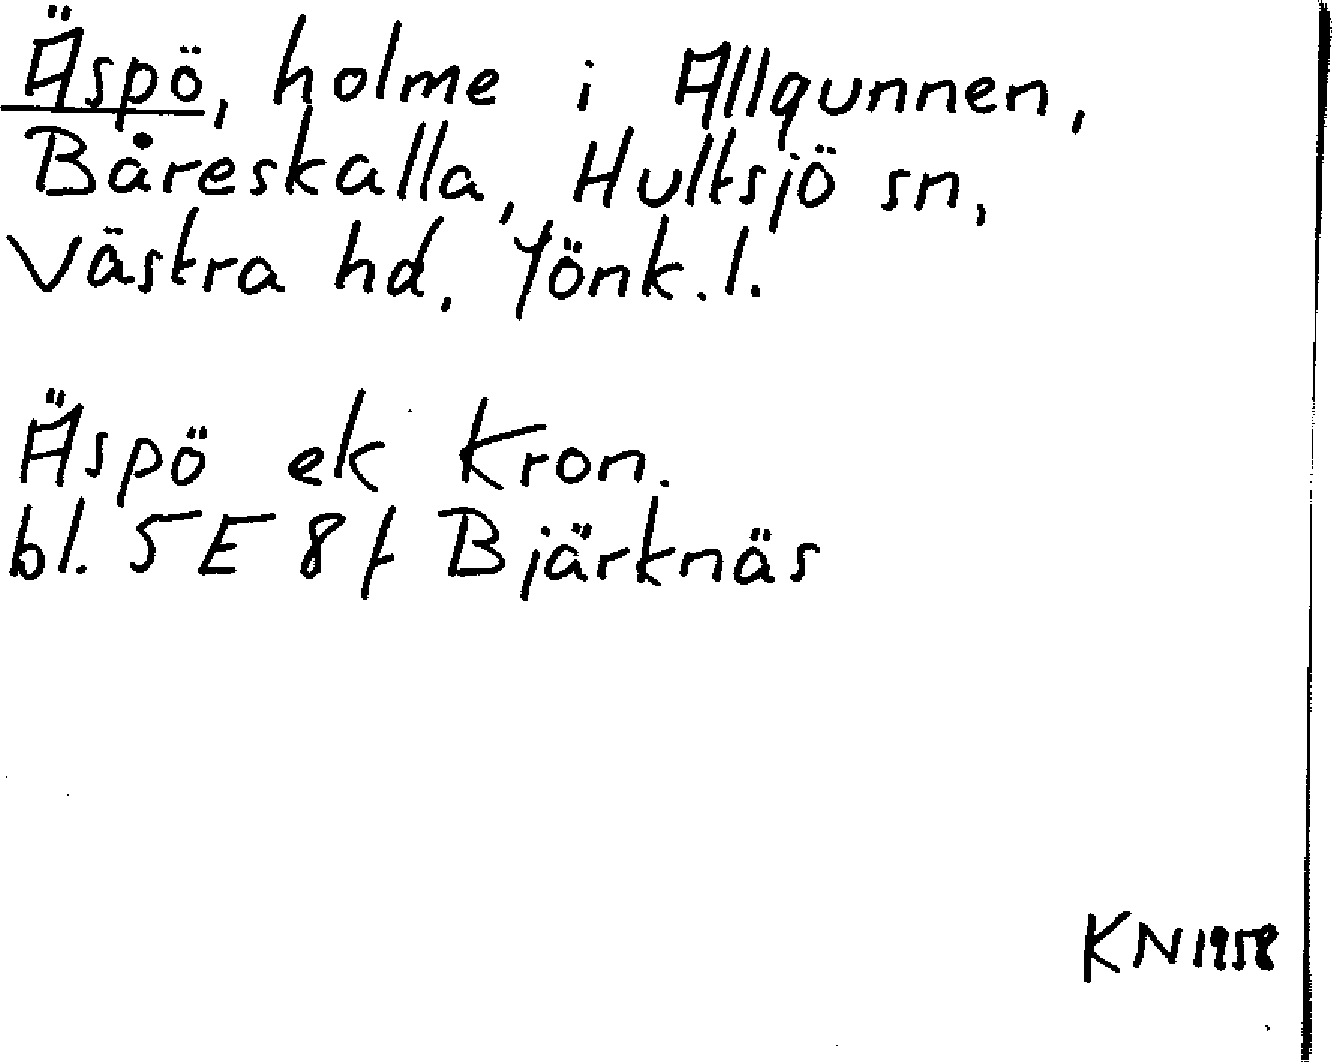 Äspö, holme i Allgunnen,
Båreskalla, Hultsjö sn,
Västra hd, Jönk.l.
Äspö ek Kron.
bl. 5E 8f Bjärknäs
KN1958